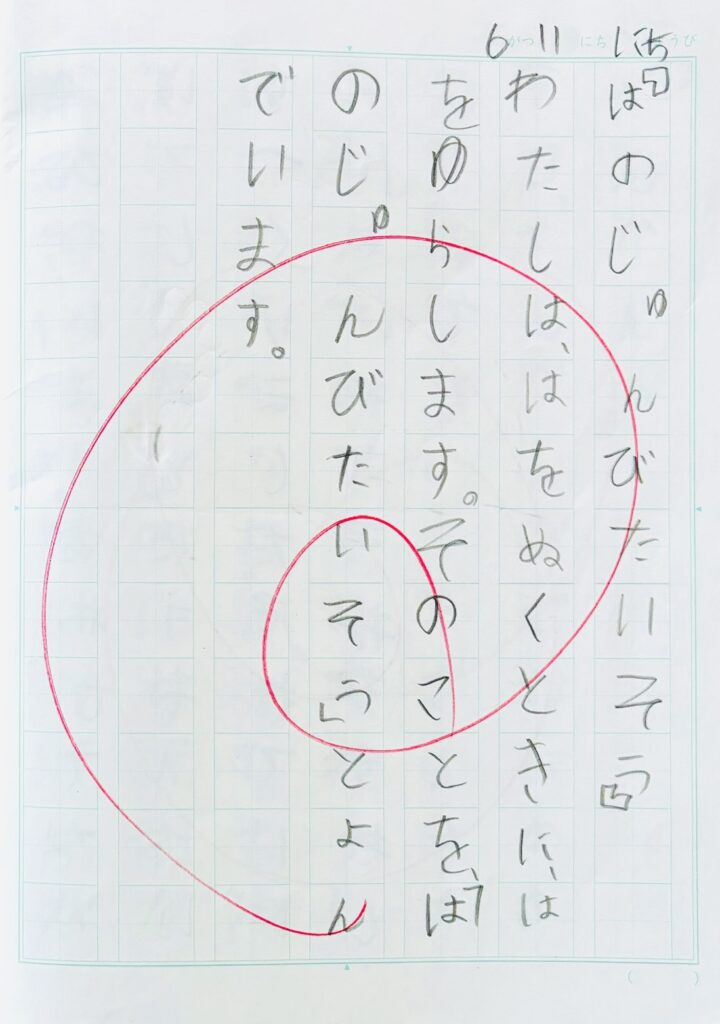 6がつ11にち にちようび
『はのじゅんびたいそう』
わたしは、はをぬくときに、は
をゆらします。そのことを、「は
のじゅんびたいそう」とよん
でいます。